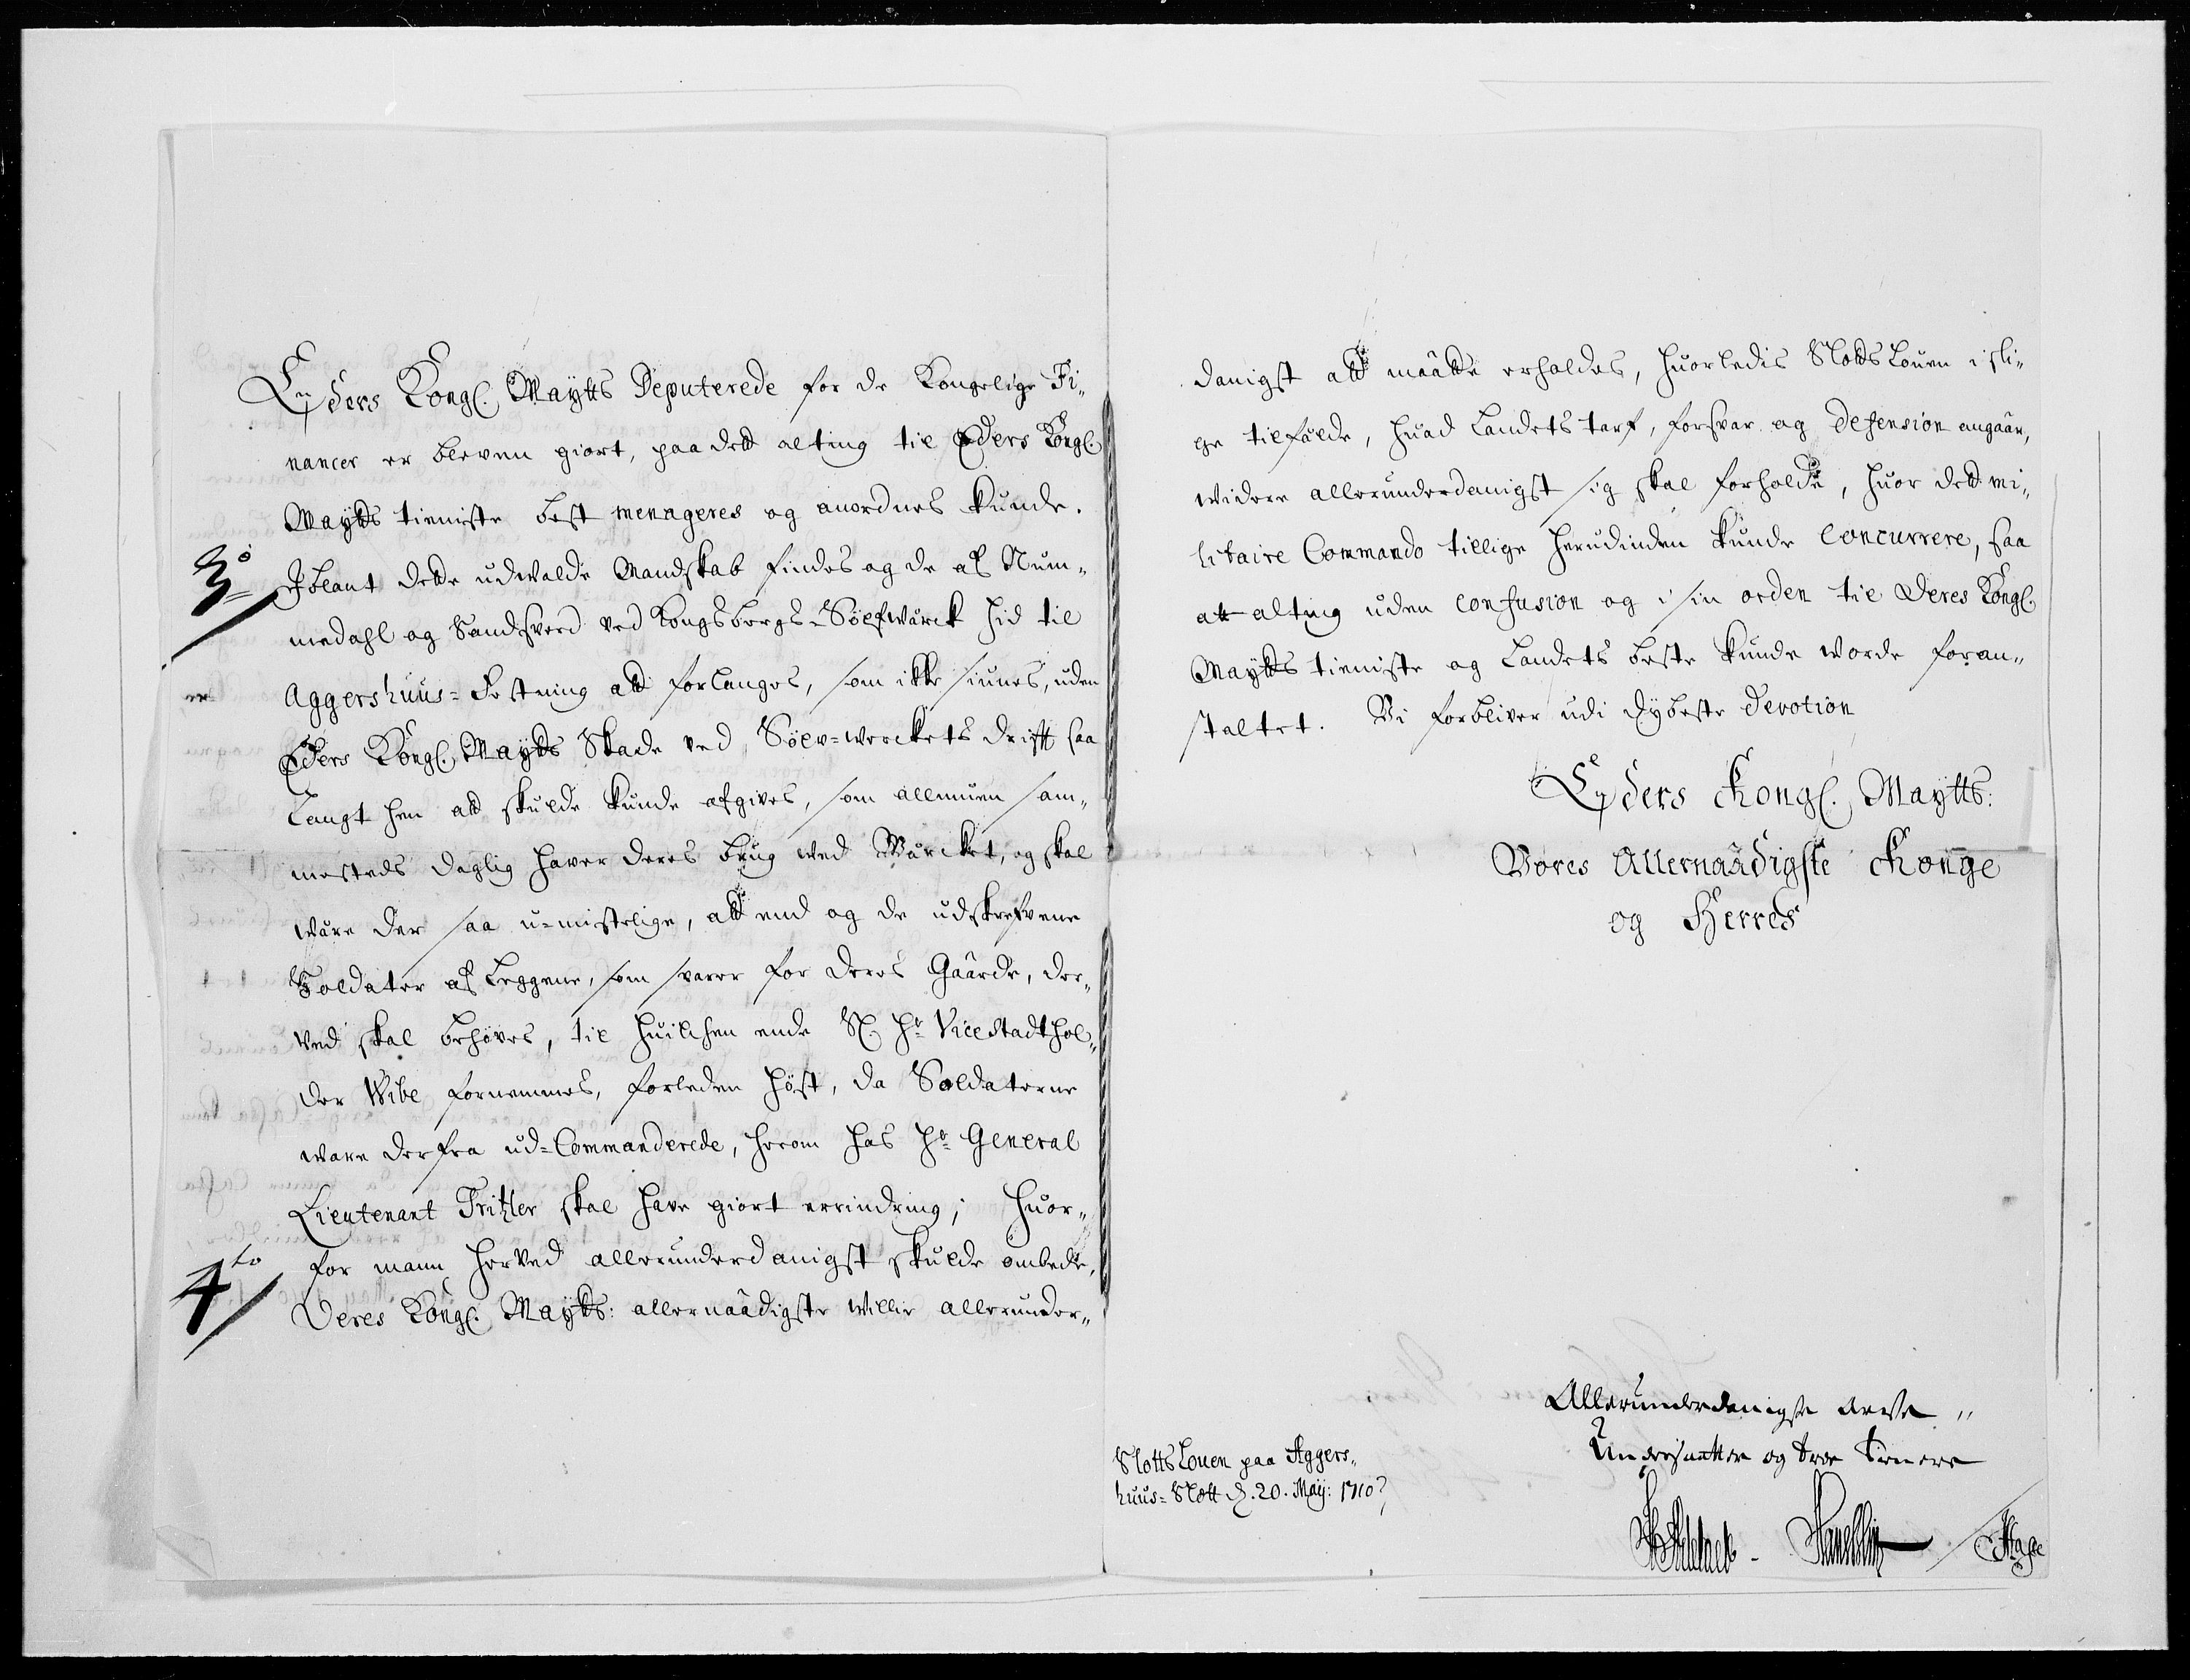 Eders Kongl. Maÿtts Deputerede for de Kongelige Fi¬
nancer er bleven giort, paa dett alting til Eders Kongl.
Maÿtts tieniste best menageres og anordnes kunde.
3o Iblant dette udvalde Mandskab findes og de af Num¬
medahl og Sandsverd ved Kongsbergs-Sølfwärck hid til
Aggershuus-Festning att forlanges, som ikke siunes, uden
Eders Kongl. Maÿtts Skade ved Sølv-werckets drifft saa
langt hen att skulde kunde afgives, som allmuen sam¬
mesteds daglig haver deres brug ved Wärcket, og skal
wäre der saa u-mistelige, att end og de udskrefvene
Soldater af Leggene, som svarer for deres Gaarde, der¬
ved skal behøves, til huilchen ende Sl. Hr. Vice Stadthol¬
der Wibe fornemmes, forleden høst, da Soldaterne
ware derfra ud-Commanderede, herom hos Hr. General
Lieutenant Tritzler skal have giort erindring; huor¬
4to for mann herved allerunderdanigst skulde ombede,
Deres Kongl. Maÿtts: allernaadigste willie allerunder¬
danigst att maatte erholdes, huorledis Slotts Louen i sli¬
ge tilfälde, huad Landets tarf, forsvar og Defension angaar,
widere allerunderdanigst sig skal forholde, huor dett mi¬
litaire Commando tillige herudinden kunde concurrere, saa
att alting uden confusion og i sin orden til Deres Kongl.
Maÿtts tieniste og Landets beste kunde worde foran¬
staltet. Vi forbliver udi dÿbeste Devotion
Eders Kongl. Maÿtts:
Vores Allernaadigste Konge
og Herres
Allerunderdanigste arve
Undersaatter og troe tienere
Slotts Louen paa Aggers¬
huus-Slott d. 20. Maÿ: 1710